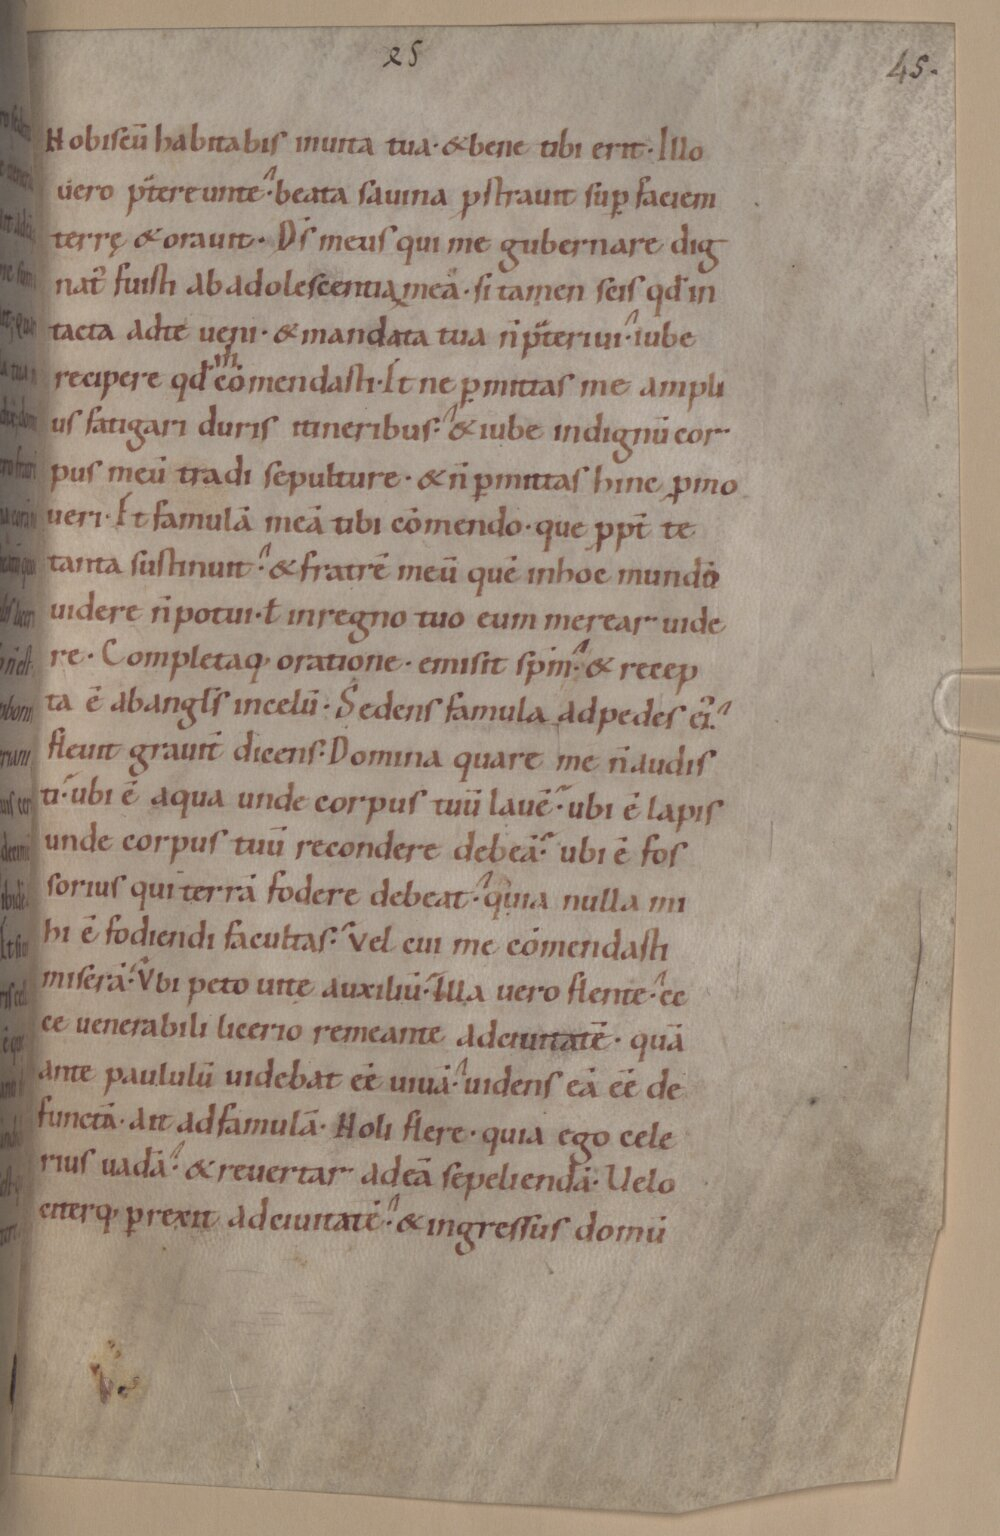 25
45.
Nobiscū habitabis inuita tua· & bene tibi erit· Illo
uero p̄tereunte· beata sauina pstrauit sup faciem
terrę & orauit· Ds̄ meus qui me gubernare dig
nat᷒ fuisti ab adolescentia mea· si tamen scis qd̄ in
tacta adte ueni· & mandata tua n̄ p̄teriui· iube
recipere qd̄ cōmendasti· Et ne pmittas me ampli
us fatigari duris itineribus· & iube indignū cor
pus meū tradi sepulture· & n̄ pmittas hinc pmo
ueri· Et famulā meā tibi cōmendo· que ppt̄ te
tanta sustinuit· & fratrē meū quē inhoc mundo
uidere n̄ potui· ł inregno tuo eum merear uide
re· Completaq; oratione· emisit sp̄m· & recep
ta ē abangl̄s incelū· Sedens famula adpedes ei᷒·
fleuit grauit̄ dicens· Domina quare me n̄ audis
ti· ubi ē aqua unde corpus tuū lauē· ubi ē lapis
unde corpus tuū recondere debeā· ubi ē fos
sorius qui terrā fodere debeat· quia nulla mi
hi ē fodiendi facultas· Vel cui me cōmendasti
miserā· Vbi peto uite auxiliū· Illa uero flente· ec
ce uenerabili licerio remeante adciuitatē· quā
ante paululū uidebat eē uiuā· uidens eā eē de
functā· ait adfamulā· Noli flere· quia ego cele
rius uadā· & reuertar adeā sepeliendā· Uelo
citerq; prexit adciuitatē· & ingressus domū